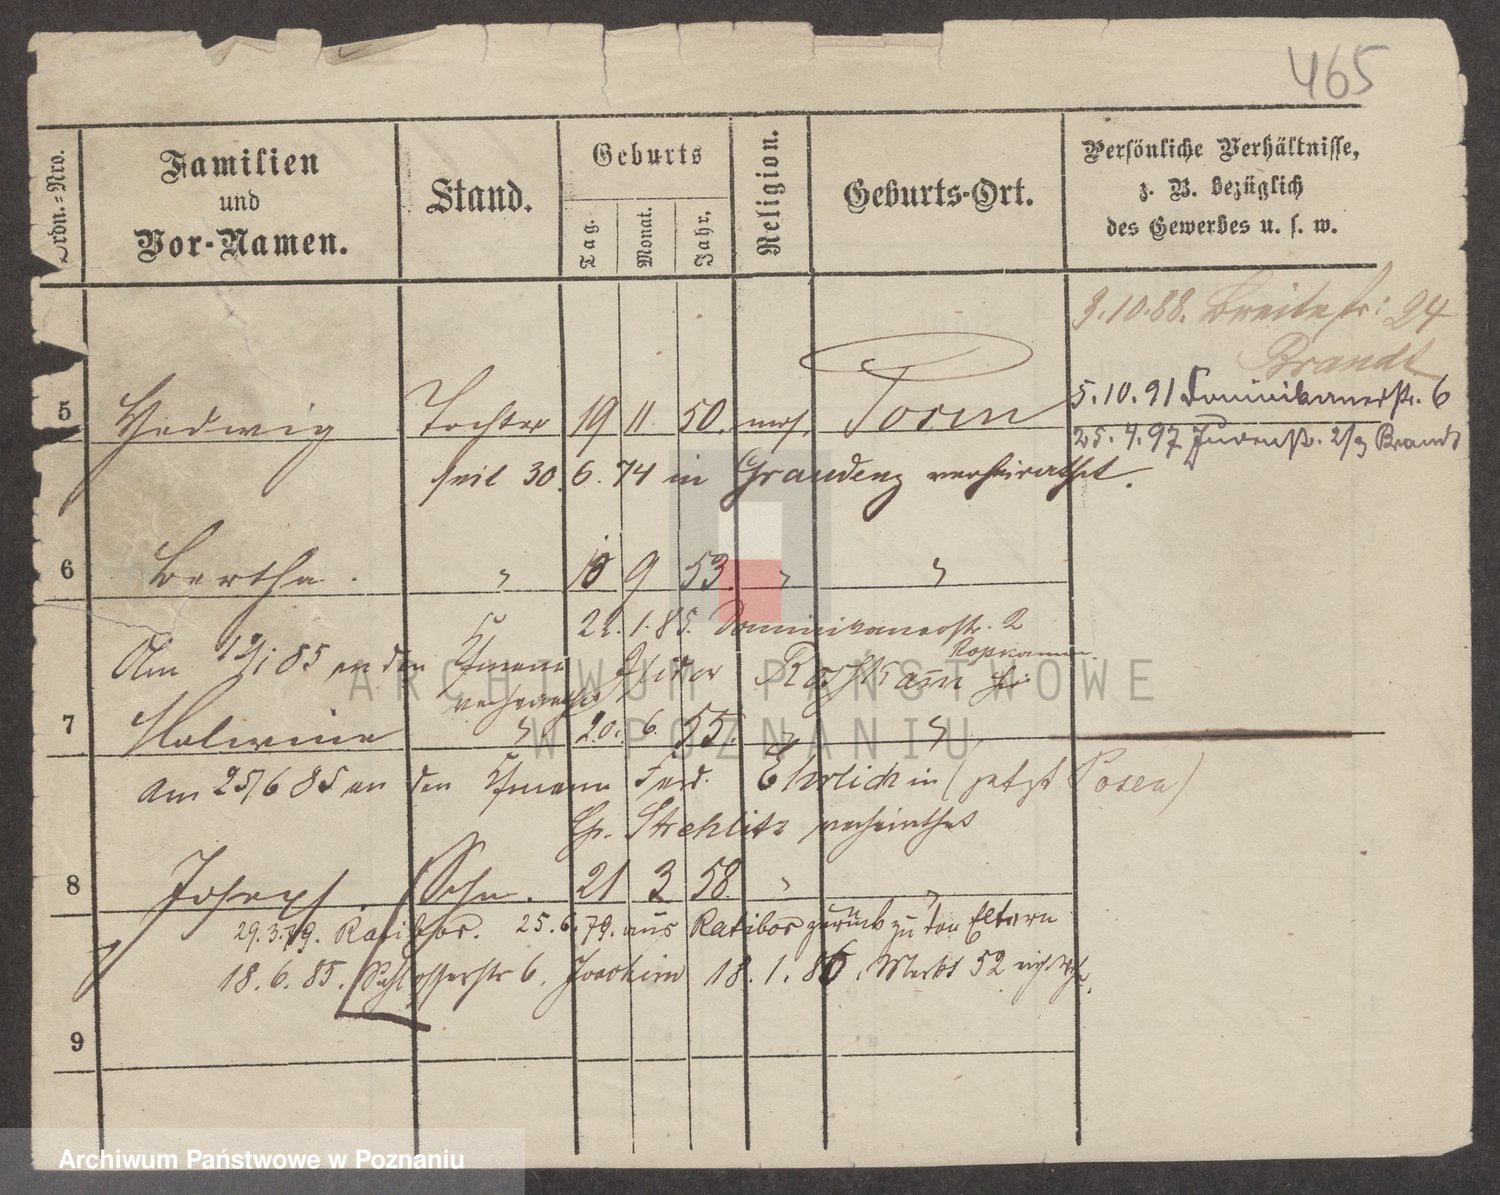 465
Ordn.-Nro.
Familien
und
Vor-Namen.
Stand.
Geburts
Tag.
Monat.
Jahr.
Religion.
Geburts-Ort.
Persönliche Verhältnisse,
z. B. bezüglich
des Gewerbes u. s. w.
9.10.88. Breitestr: 24
Brandt
5.10.91 Dominikanerstr. 6
5 Hedwig Tochter 19 11 50. mos. Posen
25.4.97 Judenstr. 2/3 Brandt
seit 30.6.74 in Graudenz verheirathet.
6 Bertha. " 10 9 53 " "
22.1.85. Dominikanerstr. 2
Am 12/1 85 an den Kfmann Isidor
verheirathet
7 Malwine " 20. 6. 55. " "
am 25/6 85 an den Kfmann Ferd. Ehrlich in (jetzt Posen)
Gr. Strehlitz verheirathet
8 Joseph. Sohn. 21 3 58 " "
29.3.79. Ratibor. 25.6.79. aus Ratibor zurück zu den Eltern
18.6.85. Schlosserstr 6. Joachim 18.1.86. Markt 52
9
ARCHIWUM PAŃSTWOWE
W POZNANIU
Archiwum Państwowe w Poznaniu